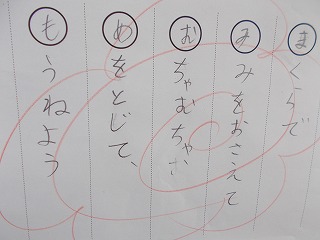 まくらで
みみをおさえて
むちゃむちゃな
めをとじて、
もうねよう